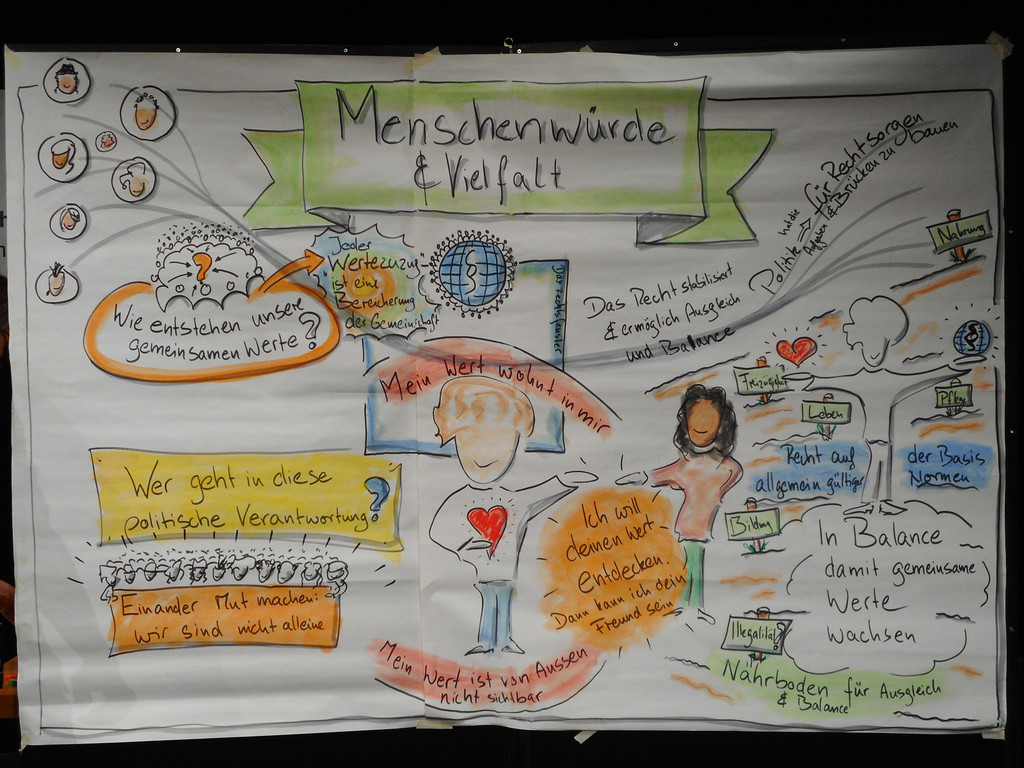 Menschenwürde
& Vielfalt
Wie entstehen unsere
gemeinsamen Werte?
?
Jeder
Wertezuzug
ist eine
Bereicherung
der Gemeinschaft
§
Das Rechtsfenster
Das Recht stabilisiert
& ermöglich Ausgleich
und Balance
Politik hat die
Aufgaben
für Rechtsorgen
& Brücken zu bauen
Nahrung
Mein Wert wohnt in mir
Freizügigkeit
Leben
Recht auf
allgemein gültiger
der Basis
Normen
Bildung
In Balance
damit gemeinsame
Werte
wachsen
Illegalität?
Nährboden für Ausgleich
& Balance
Wer geht in diese
politische Verantwortung?
Einander Mut machen:
wir sind nicht alleine
Ich will
deinen Wert
entdecken.
Dann kann ich dein
Freund sein
Mein Wert ist von Aussen
nicht sichtbar